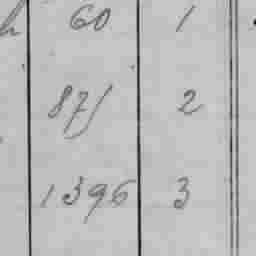 60 1
871 2
1396 3